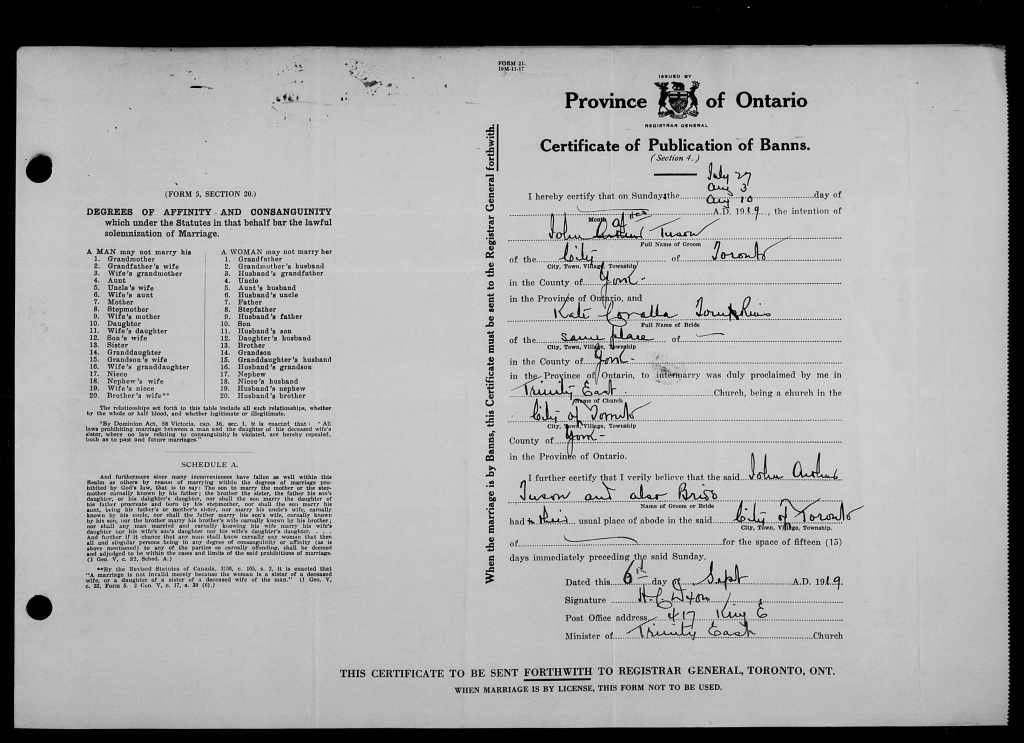 (FORM 5, SECTION 20.)
DEGREES OF AFFINITY AND CONSANGUINITY
which under the Statutes in that behalf bar the lawful
solemnization of Marriage.
A MAN may not marry his
1. Grandmother
2. Grandfather's wife
3. Wife's grandmother
4. Aunt
5. Uncle's wife
6. Wife's aunt
7. Mother
8. Stepmother
9. Wife's mother
10. Daughter
11. Wife's daughter
12. Son's wife
13. Sister
14. Granddaughter
15. Grandson's wife
16. Wife's granddaughter
17. Niece
18. Nephew's wife
19. Wife's niece
20. Brother's wife**
A WOMAN may not marry her
1. Grandfather
2. Grandmother's husband
3. Husband's grandfather
4. Uncle
5. Aunt's husband
6. Husband's uncle
7. Father
8. Stepfather
9. Husband's father
10. Son
11. Husband's son
12. Daughter's husband
13. Brother
14. Grandson
15. Granddaughter's husband
16. Husband's grandson
17. Nephew
18. Niece's husband
19. Husband's nephew
20. Husband's brother
The relationships set forth in this table include all such relationships, whether
by the whole or half blood, and whether legitimate or illegitimate.
*By Dominion Act, 58 Victoria, cap. 36, sec. 1, it is enacted that: "All
laws prohibiting marriage between a man and the daughter of his deceased wife's
sister, where no law relating to consanguinity is violated, are hereby repealed,
both as to past and future marriages."
SCHEDULE A.
And furthermore since many inconveniences have fallen as well within this
Realm as others by reason of marrying within the degrees of marriage pro-
hibited by God's law, that is to say: The son to marry the mother or the step-
mother carnally known by his father; the brother the sister, the father his son's
daughter, or his daughter's daughter, nor shall the son marry the daughter of
his father procreate and born by his stepmother, nor shall the son marry his
aunt, being his father's or mother's sister, nor marry his uncle's wife, carnally
known by his uncle, nor shall the father marry his son's wife, carnally known
by his son, nor the brother marry his brother's wife carnally known by his brother;
nor shall any man married and carnally knowing his wife marry his wife's
daughter nor his wife's son's daughter nor his wife's daughter's daughter.
And further if it chance that any man shall know carnally any woman that then
all and singular persons being in any degree of consanguinity or affinity (as is
above mentioned) to any of the parties so carnally offending, shall be deemed
and adjudged to be within the cases and limits of the said prohibitions of marriage.
(1 Geo. V, c. 32, Sched. A.)
**By the Revised Statutes of Canada, 1906, c. 105, s. 2, it is enacted that
"A marriage is not invalid merely because the woman is a sister of a deceased
wife, or a daughter of a sister of a deceased wife of the man." (1 Geo. V,
c. 32, Form 5. 2 Geo. V, c. 17, s. 33 (6).)
When the marriage is by Banns, this Certificate must be sent to the Registrar General forthwith.
FORM 21.
10M-11-17
ISSUED BY
Province of Ontario
REGISTRAR GENERAL
Certificate of Publication of Banns.
(Section 4.)
July 27
Aug 3
I hereby certify that on Sunday, the Aug 10 day of
A.D. 1919, the intention of
Month
John Arthur Tuson
Full Name of Groom
of the City of Toronto
City, Town, Village, Township
in the County of York
in the Province of Ontario, and
Kate Coralla
Full Name of Bride
of the same place of
City, Town, Village, Township
in the County of York
in the Province of Ontario, to intermarry was duly proclaimed by me in
Trinity East Church, being a church in the
Name of Church
City of Toronto
City, Town, Village, Township
County of York
in the Province of Ontario.
I further certify that I verily believe that the said John Arthur
Tuson and also Bride
Name of Groom or Bride
had their usual place of abode in the said City of Toronto
City, Town, Village, Township
of for the space of fifteen (15)
days immediately preceding the said Sunday.
Dated this 6th day of Sept A.D. 1919.
Signature H. C. Dixon
Post Office address 417 King E
Minister of Trinity East Church
THIS CERTIFICATE TO BE SENT FORTHWITH TO REGISTRAR GENERAL, TORONTO, ONT.
WHEN MARRIAGE IS BY LICENSE, THIS FORM NOT TO BE USED.